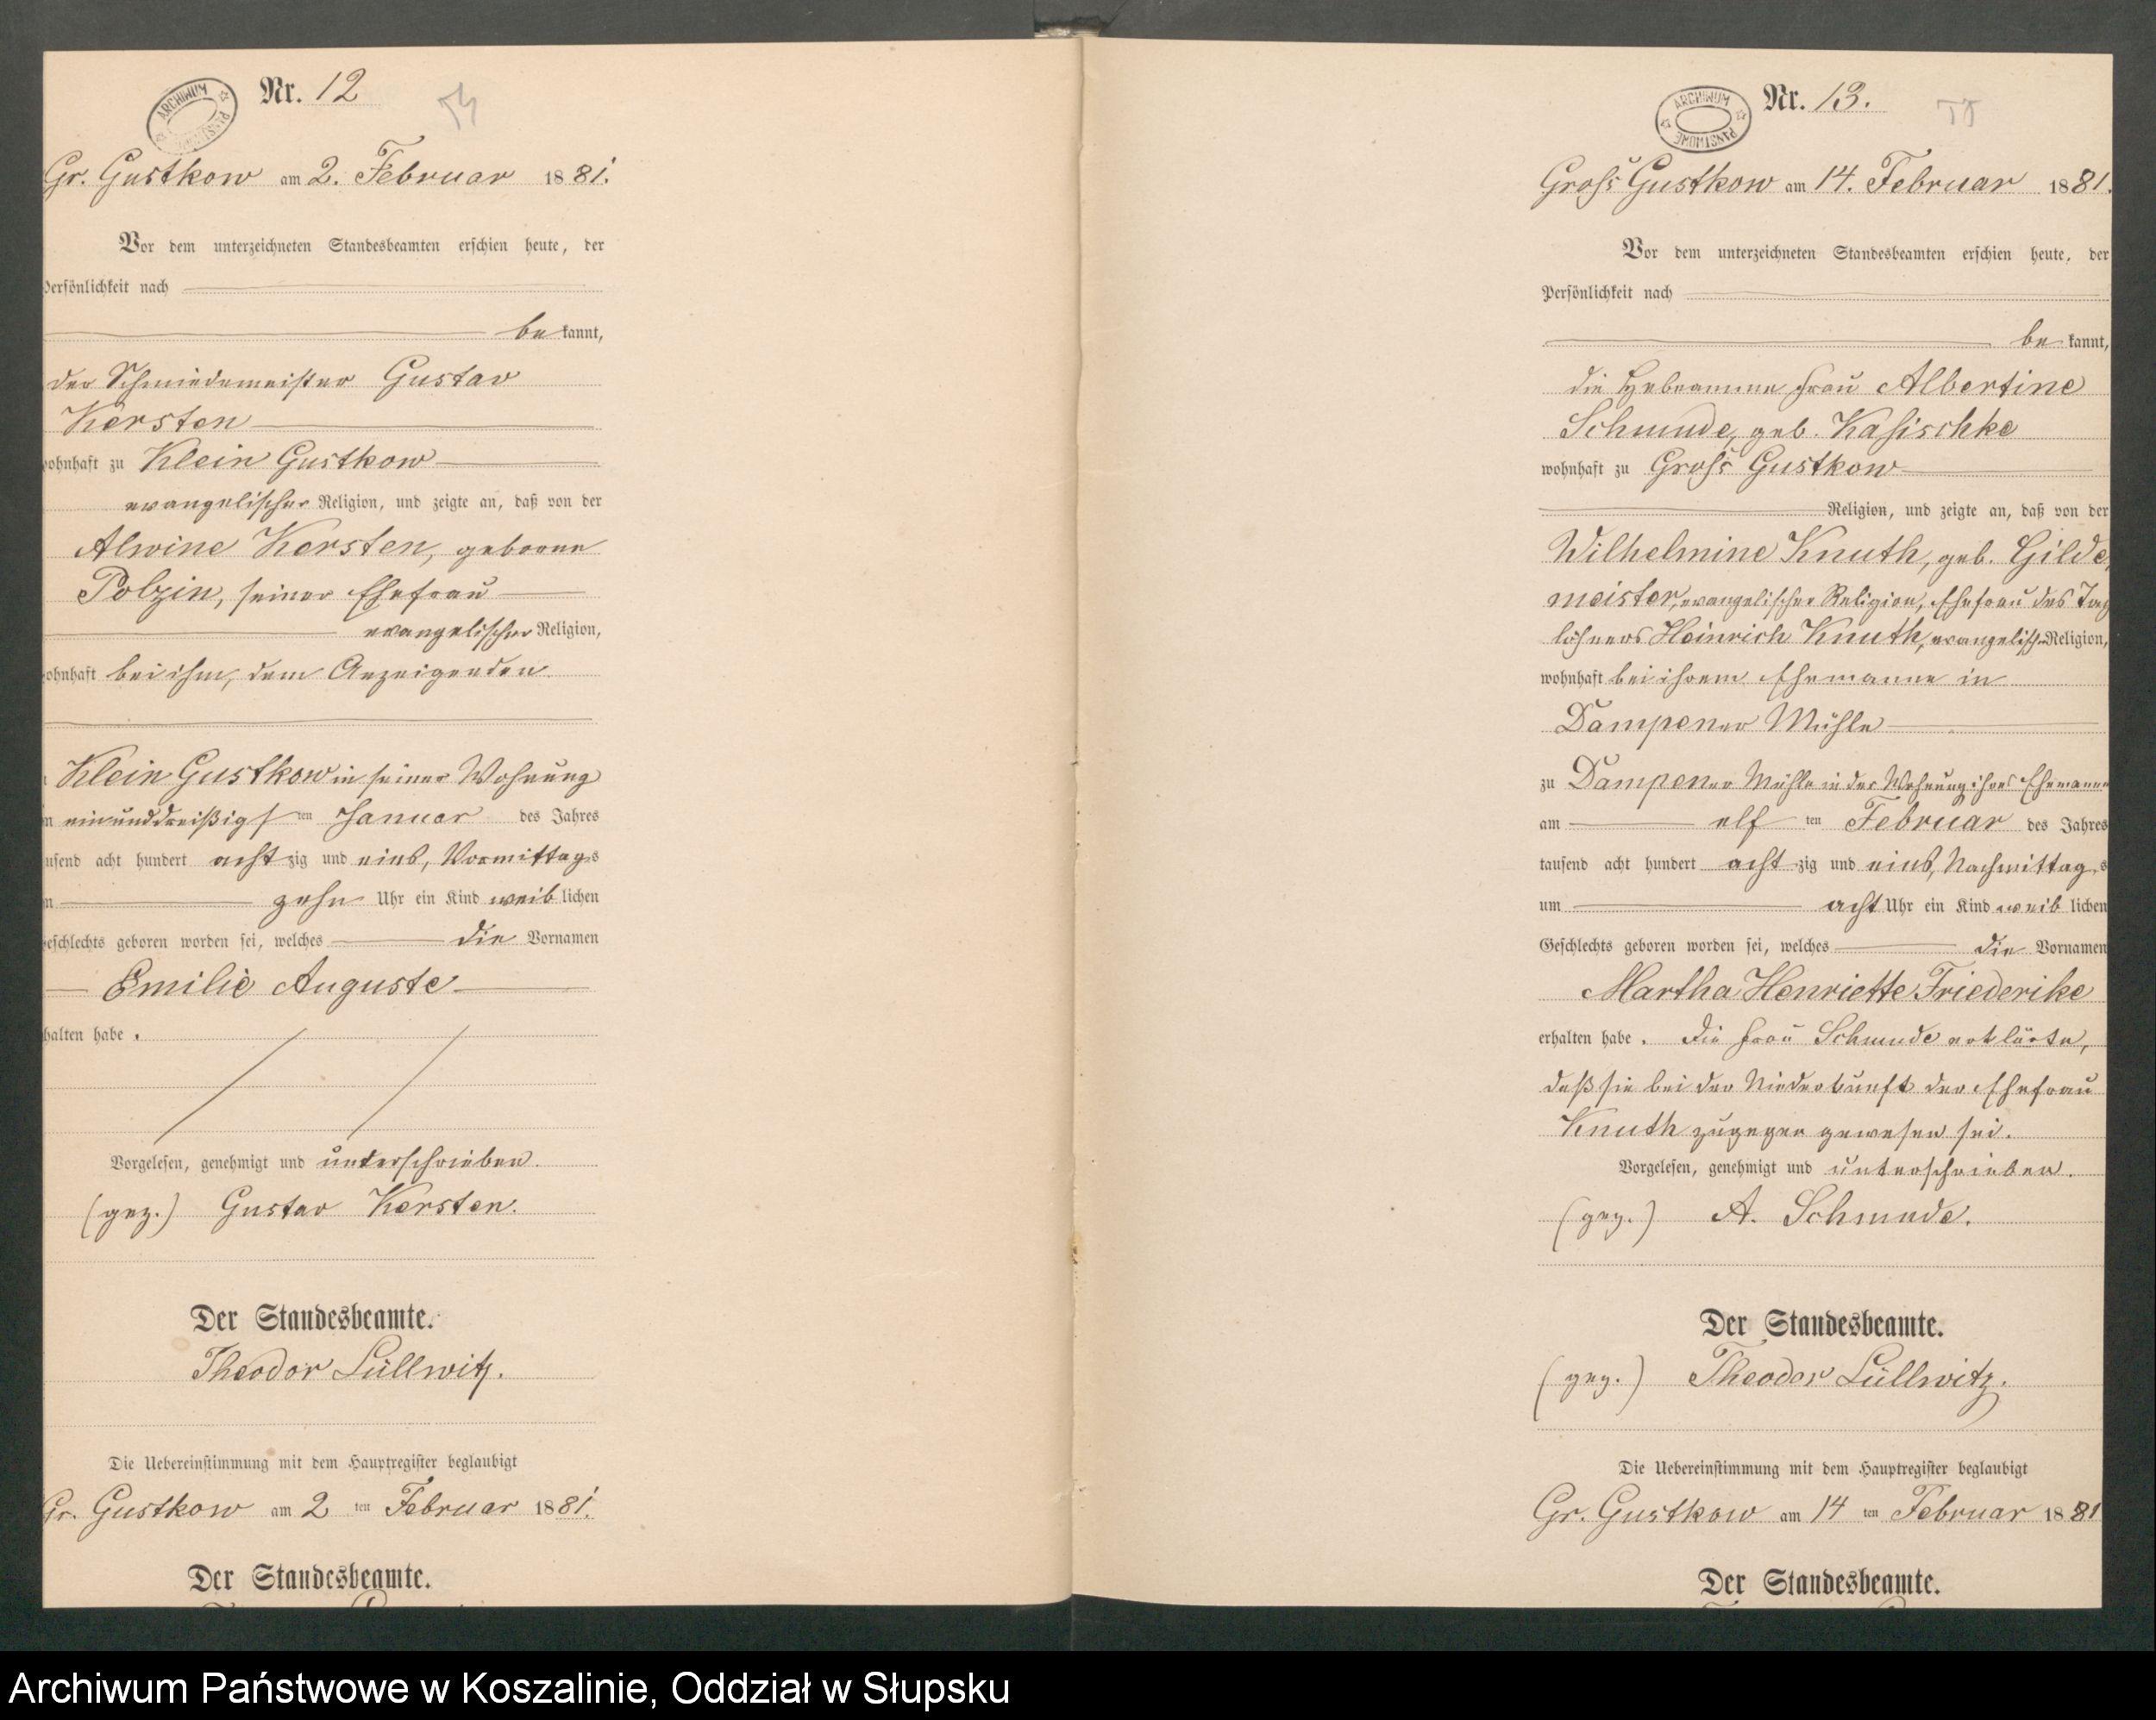 ARCHIWUM PAŃSTWOWE
Nr. 12
Gr. Gustkow am 2. Februar 1881.
Vor dem unterzeichneten Standesbeamten erschien heute, der
Persönlichkeit nach
bekannt,
der Schmiedemeister Gustav
Kersten
wohnhaft zu Klein Gustkow
evangelischer Religion, und zeigte an, daß von der
Alwine Kersten, geborene
Polzin, seiner Ehefrau
evangelischer Religion,
wohnhaft bei ihm, dem Anzeigenden
Klein Gustkow in seiner Wohnung
einunddreißigsten Januar des Jahres
tausend acht hundert achtzig und eins, Vormittags
zehn Uhr ein Kind weiblichen
Geschlechts geboren worden sei, welches die Vornamen
Emilie Auguste
halten habe.
Vorgelesen, genehmigt und unterschrieben.
(gez.) Gustav Kersten.
Der Standesbeamte.
Theodor Lüllwitz.
Die Uebereinstimmung mit dem Hauptregister beglaubigt
Gr. Gustkow am 2ten Februar 1881.
Der Standesbeamte.
ARCHIWUM PAŃSTWOWE
Nr. 13.
Groß Gustkow am 14. Februar 1881.
Vor dem unterzeichneten Standesbeamten erschien heute, der
Persönlichkeit nach
bekannt,
die Hebeamme Frau Albertine
Schmude, geb. Kasischke
wohnhaft zu Groß Gustkow
Religion, und zeigte an, daß von der
Wilhelmine Knuth, geb. Gilde,
meister, evangelischer Religion, Ehefrau des Tag
löhners Heinrich Knuth, evangelisch. Religion,
wohnhaft bei ihrem Ehemanne in
Dampener Mühle
zu Dampener Mühle in der Wohnung ihres Ehemannes
am elften Februar des Jahres
tausend acht hundert achtzig und eins, Nachmittags
um acht Uhr ein Kind weiblichen
Geschlechts geboren worden sei, welches die Vornamen
Martha Henriette Friederike
erhalten habe. Die Frau Schmude erklärte,
daß sie bei der Niederkunft der Ehefrau
Knuth zugegen gewesen sei.
Vorgelesen, genehmigt und unterschrieben.
(gez.) A. Schmude.
Der Standesbeamte.
(gez.) Theodor Lüllwitz.
Die Uebereinstimmung mit dem Hauptregister beglaubigt
Gr. Gustkow am 14ten Februar 1881
Der Standesbeamte.
Archiwum Państwowe w Koszalinie, Oddział w Słupsku